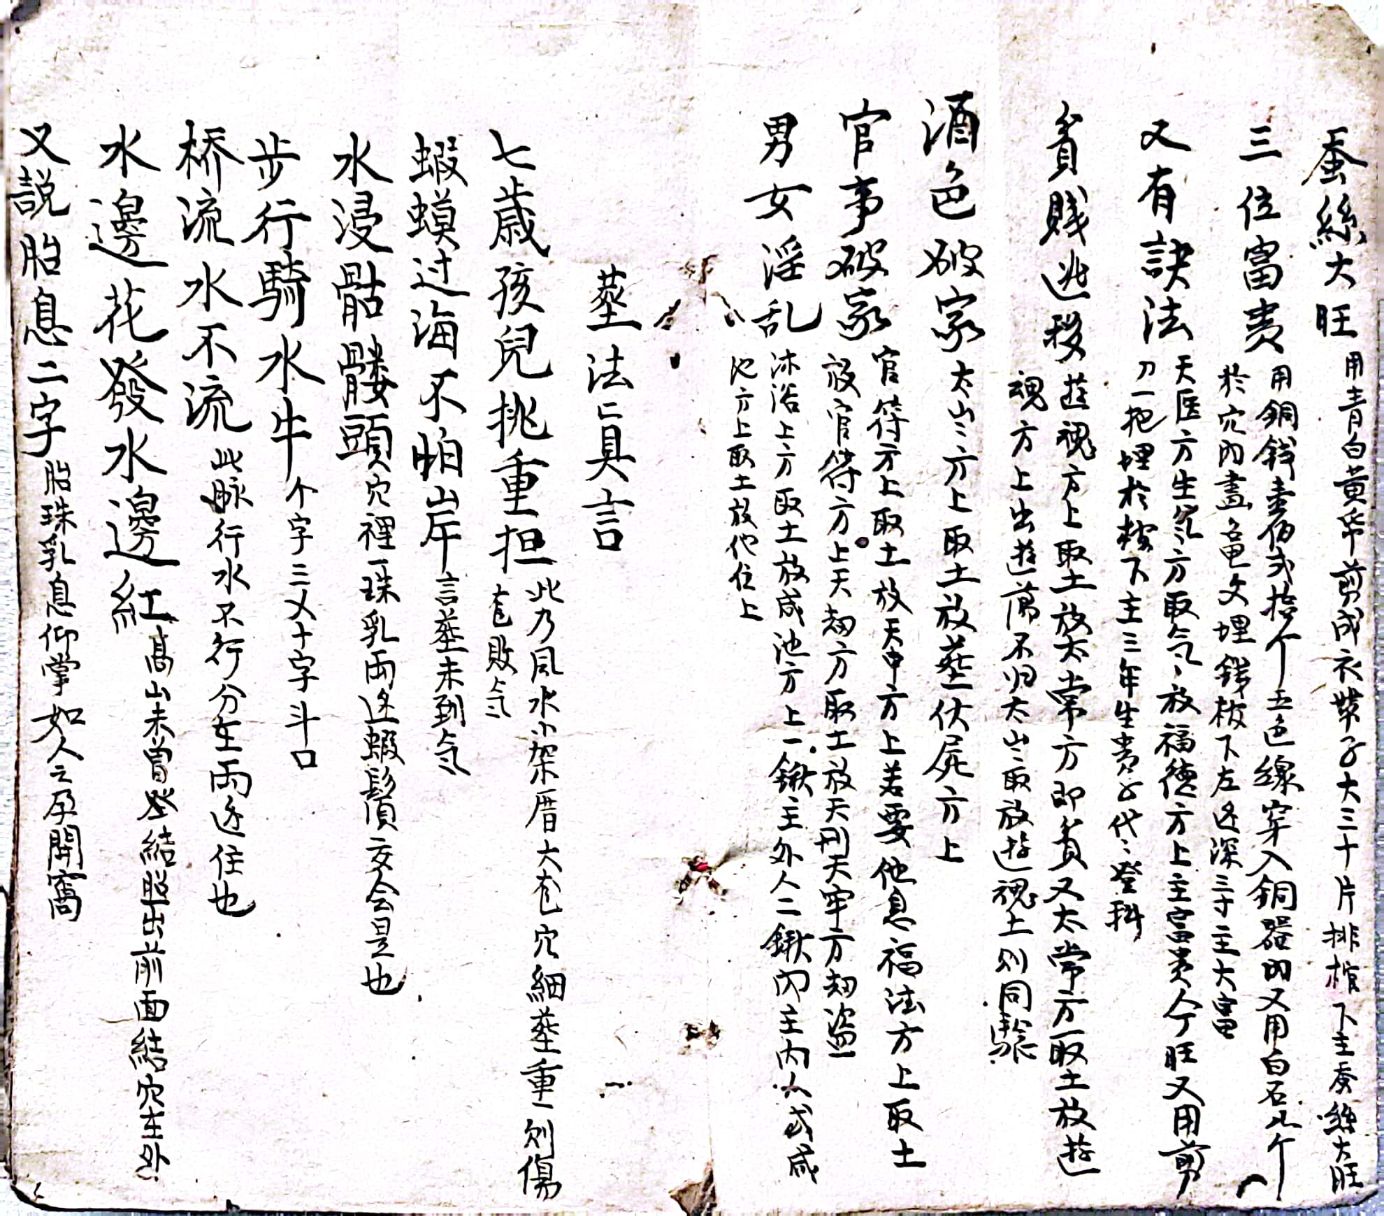 蚕絲大旺 用青白黄帋剪成衣帶子大三十片排棺下主蚕絲大旺
三位富貴 用銅錢壹佰弍拾个五色線穿入銅器内又用白石九个
於穴内畫黿文埋錢枝下左边深三寸主大富
又有訣法 天医方生炁方取气々放福德方上主富贵人丁旺又用剪
刀一把埋於棺下主三年生贵子代々登科
貧賤逃移 遊魂方上取土放太常方即貧又太常方取土放遊
魂方上出遊蕩不归太山取放遊魂土则同騐
酒色破家 太山方上取土放葬伏屍方上
官事破家 官符方上取土放天中方上若要他息福法方上取土
放官符方上天刼方取土放天刑天牢方刼盗
男女淫乱 沐浴上方取土放咸池方上一鍬主外人二鍬内主内人或咸
池方上取土放他位上
葬法亡真言
七歳孩兒挑重担 此乃風水小架厝大也穴細葬重则傷
也敗气
蝦蟆过海不怕岸 言葬未到气
水浸骷髏頭 穴裡一珠乳两边蝦鬚交会是也
步行騎水牛 个字三义十字斗口
桥流水不流 此脉行水不行分在両边住也
水邊花發水邊紅 髙山未曾登結照出前面結穴在外
又説胎息二字 胎珠乳息仰掌如人之孕開窩